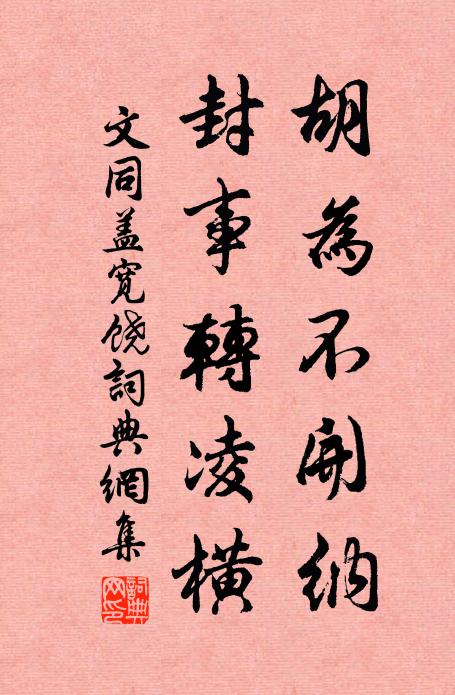 胡為不開納
封事轉凌橫
文同盖寬饶詞典網集
詞典網印